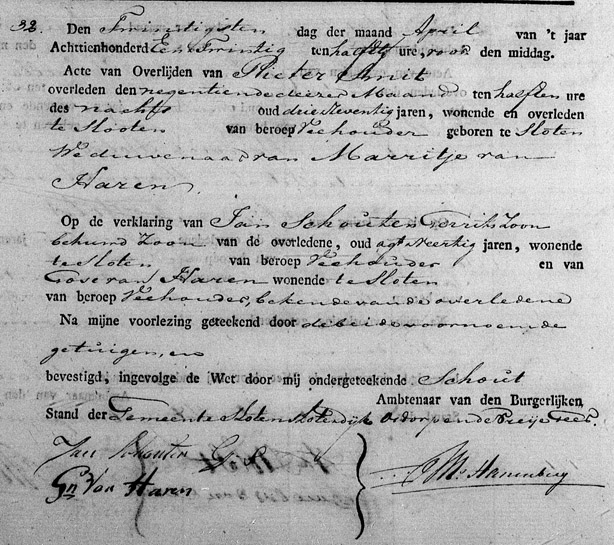 32. Den Twintigsten dag der maand April van 't jaar
Achttienhonderd Een Twintig ten half ure, voor den middag.
Acte van Overlijden van Pieter Smit
overleden den negentiende dezer Maand ten half tien ure
des nachts oud drie Seventig jaren, wonende en overleden
te Slooten van beroep Veehouder geboren te Sloten
Weduwenaar van Marritje van
Haren.
Op de verklaring van Jan Schouten Gerritszoon
behund Zoon van de overledene, oud agt Veertig jaren, wonende
te Sloten van beroep Veehouder en van
van Haren wonende te Sloten
van beroep Veehouder, bekende van de overledene
Na mijne voorlezing geteekend door de beide voornoemde
getuigen, en
bevestigd, ingevolge de Wet door mij ondergeteekende Schout
Ambtenaar van den Burgerlijken
Stand der Gemeente Sloten Sloterdijk Osdorp en de Vrije Geer.
Jan Schouten G:Z
Gt Van Haren
Hanenberg